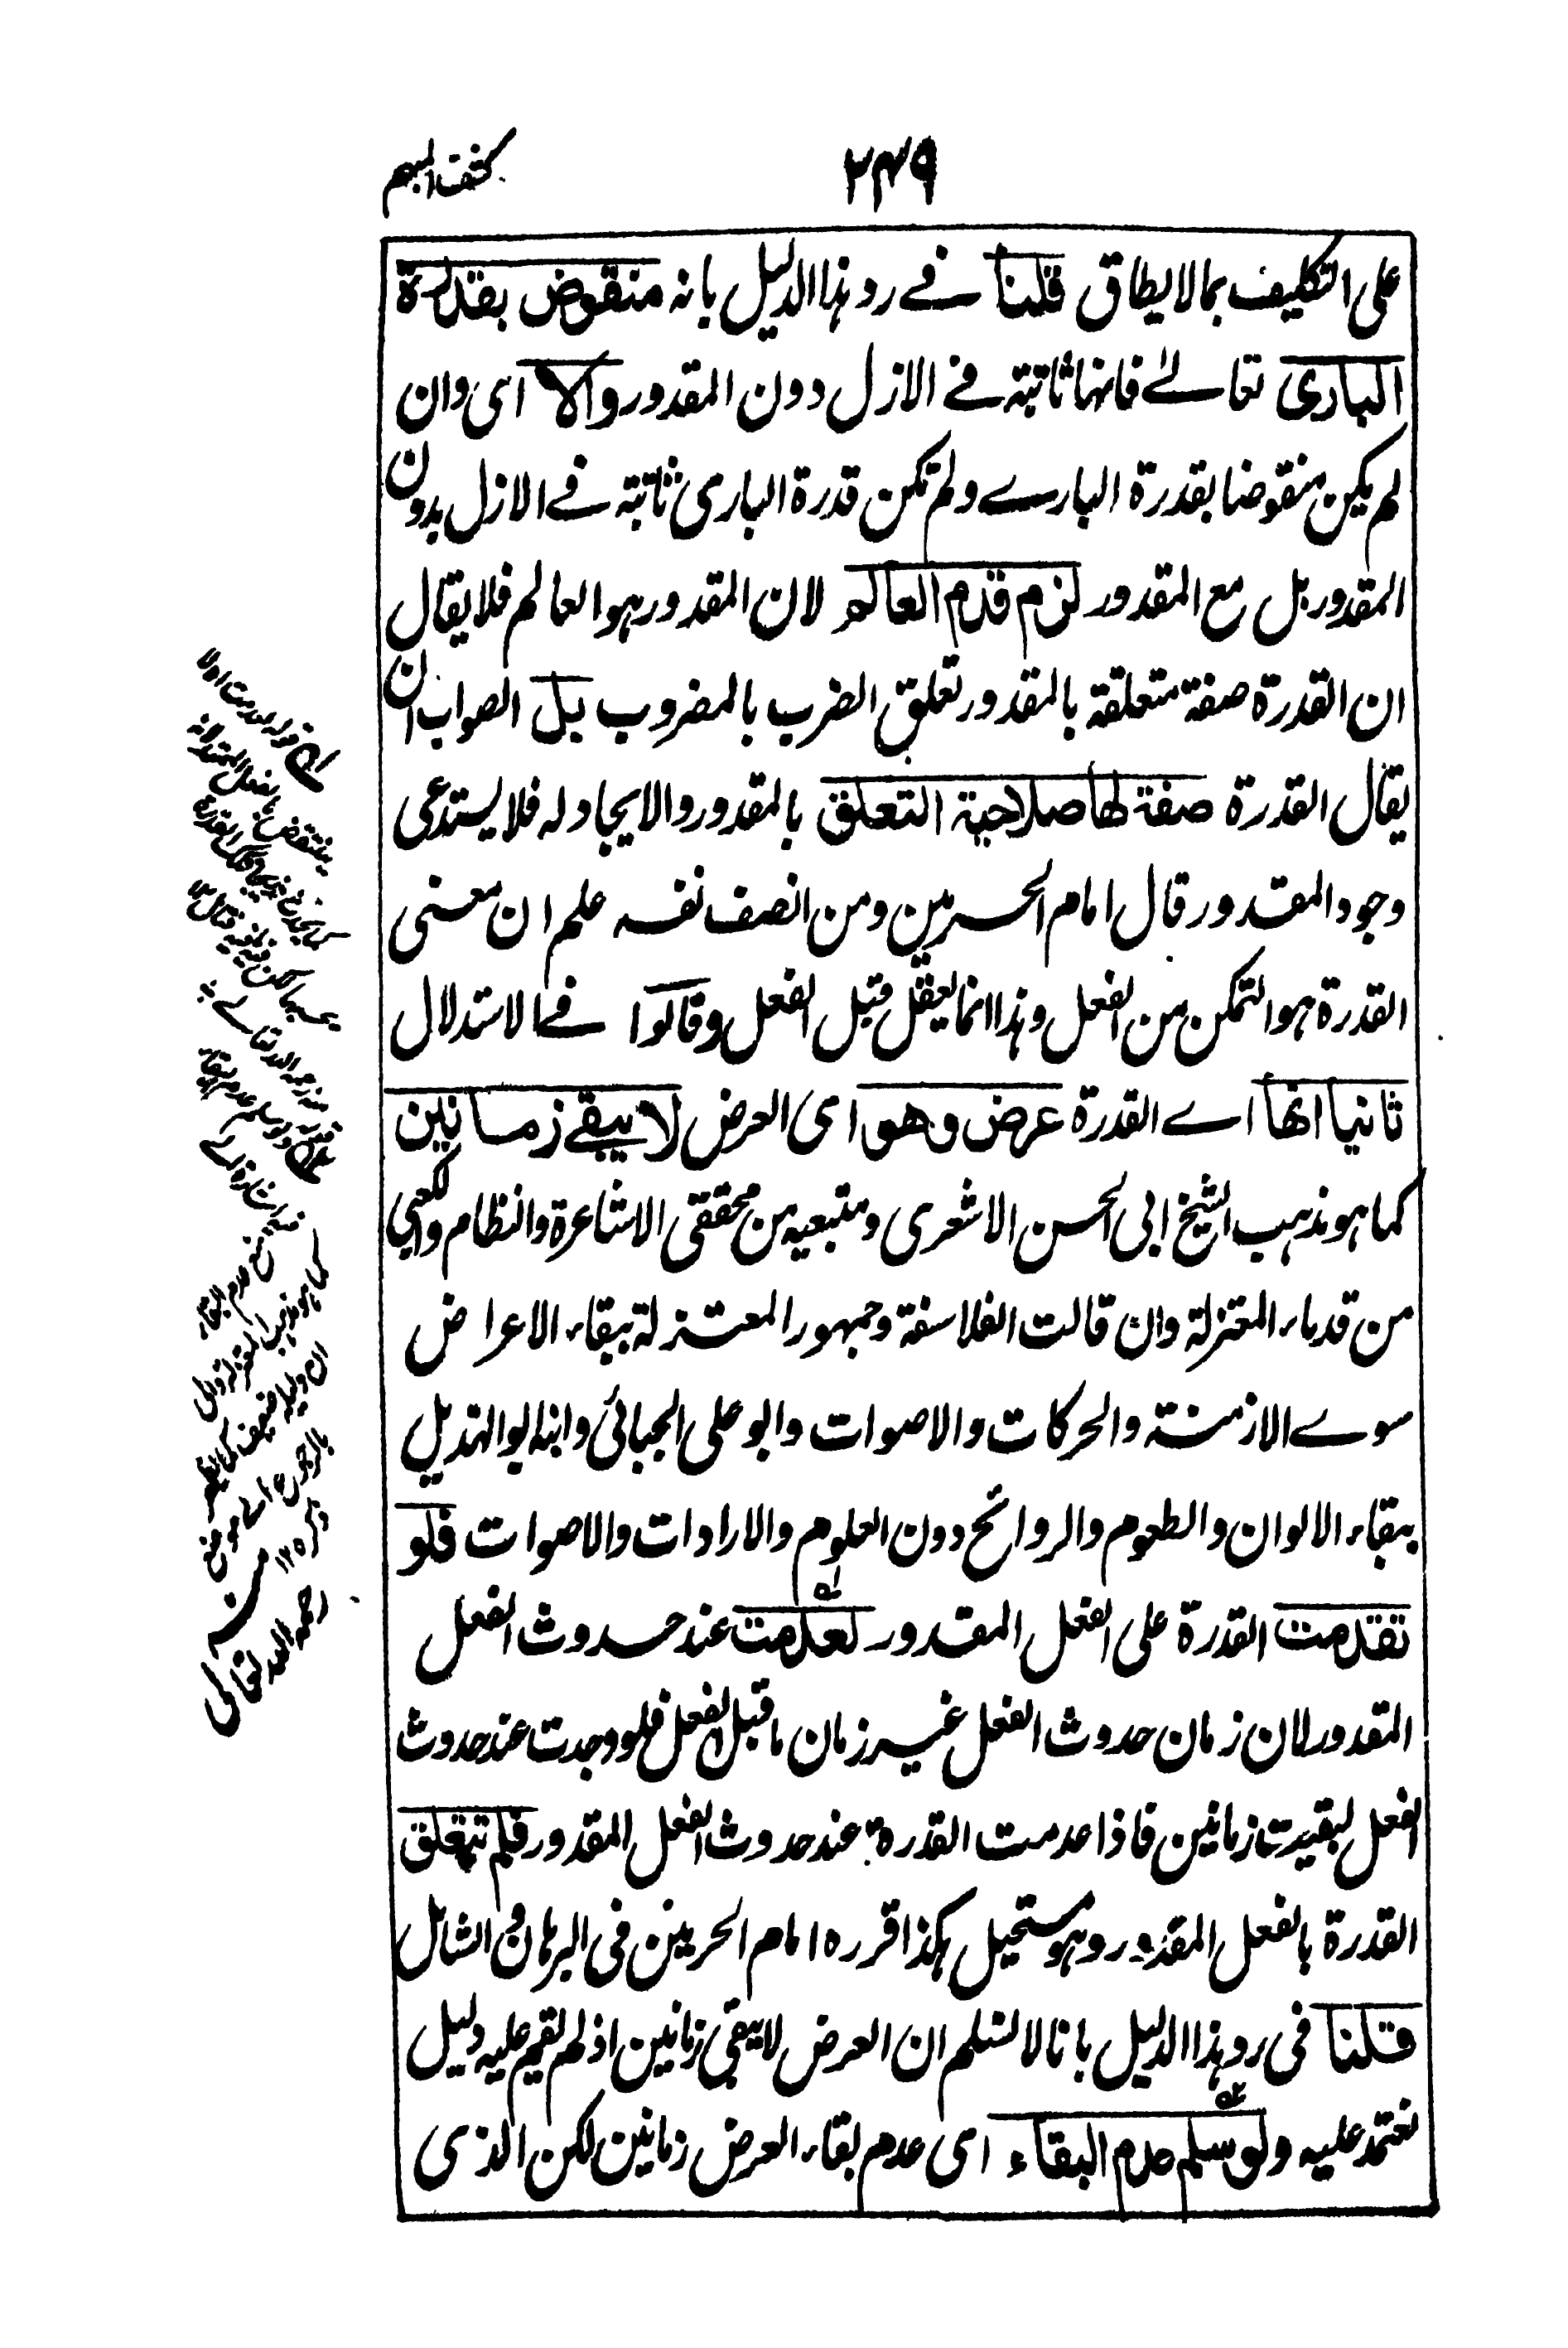 ٢٤٩
كشف المبهم
على التكليف بما لا يطاق قلنا في رد هذا الدليل بانه منقوض بقدرة
الباري تعالى فانها ثابتة في الازل دون المقدور والا اى وان
لم يكن منقوضا بقدرة الباري ولم تكن قدرة الباري ثابتة في الازل بدون
المقدور بل مع المقدور لزم قدم العالم لان المقدور هو العالم فلا يقال
ان القدرة صفة متعلقة بالمقدور تعلق الضرب بالمضروب بل الصواب ان
يقال القدرة صفة لها صلاحية التعلق بالمقدور والايجاد له فلا يستدعى
وجود المقدور قال امام الحرمين ومن انصف نفسه علم ان معنى
القدرة هو التمكن من الفعل وهذا انما يعقل قبل الفعل وقالوا في الاستدلال
ثانيا انها اے القدرة عرض وهو اى العرض لا يبقى زمانين
كما هو مذهب الشيخ ابى الحسن الاشعرى ومتبعيه من محققى الاشاعرة والنظام والكعبى
من قدماء المعتزلة وان قالت الفلاسفة وجمهور المعتزلة ببقاء الاعراض
سوى الازمنة والحركات والاصوات وابو على الجبائى وابنه ابو الهذيل
ببقاء الالوان والطعوم والروائح دون العلوم والارادات والاصوات فلو
تقدمت القدرة على الفعل المقدور لعدمت عند حدوث الفعل
المقدور لان زمان حدوث الفعل غير زمان ما قبل الفعل فلو وجدت عند حدوث
الفعل لبقيت زمانين فاذا عدمت القدرة عند حدوث الفعل المقدور فلم تتعلق
القدرة بالفعل المقدور وهو مستحيل هكذا قرره امام الحرمين فى البرهان والشامل
قلنا فى رد هذا الدليل بانا لا نسلم ان العرض لا يبقى زمانين اذ لم يقم عليه دليل
نعتمد عليه ولو سلم عدم البقاء اى عدم بقاء العرض زمانين لكن الذى
قوله لعدمت
ينتقض بالفعل
رحمه الله تعالى
قوله ولو سلم عدم البقاء
فيه اشارة الى
منع عدم البقاء
كما هو مذهب المعتزلة
١٢ منه
رحمه الله تعالى